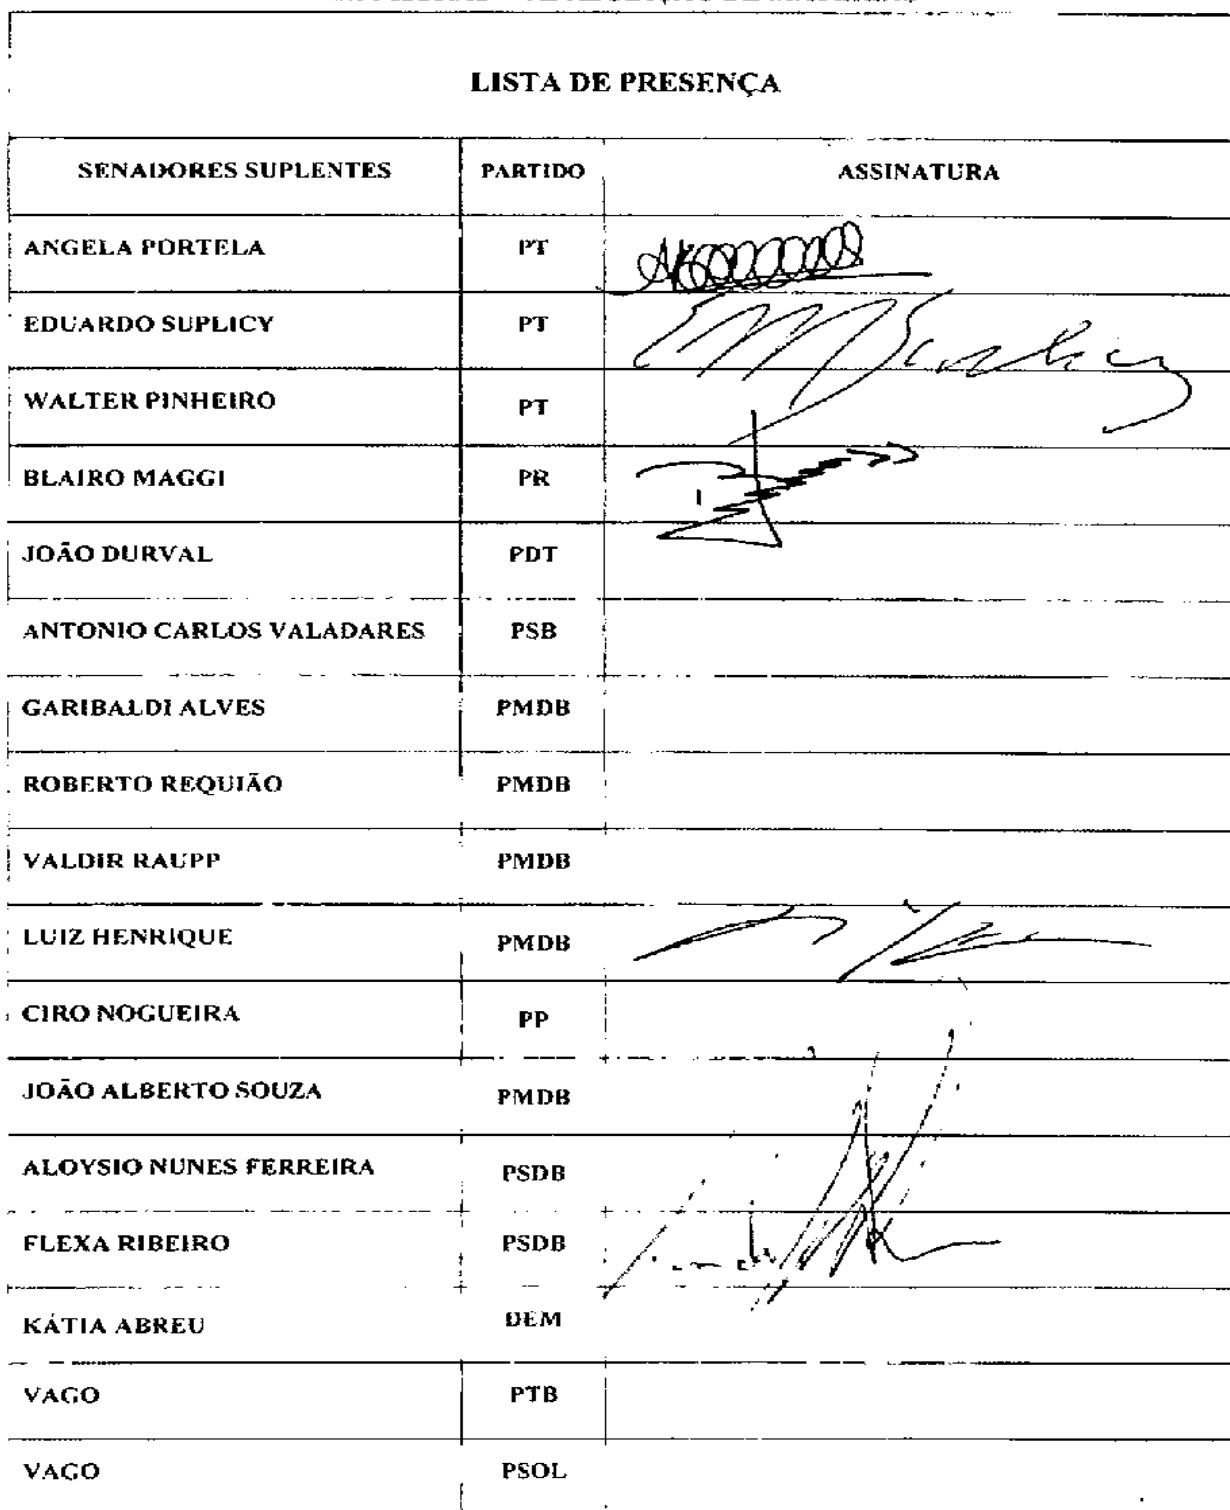 LISTA DE PRESENÇA
SENADORES SUPLENTES PARTIDO ASSINATURA
ANGELA PORTELA PT
EDUARDO SUPLICY PT
WALTER PINHEIRO PT
BLAIRO MAGGI PR
JOÃO DURVAL PDT
ANTONIO CARLOS VALADARES PSB
GARIBALDI ALVES PMDB
ROBERTO REQUIÃO PMDB
VALDIR RAUPP PMDB
LUIZ HENRIQUE PMDB
CIRO NOGUEIRA PP
JOÃO ALBERTO SOUZA PMDB
ALOYSIO NUNES FERREIRA PSDB
FLEXA RIBEIRO PSDB
KÁTIA ABREU DEM
VAGO PTB
VAGO PSOL